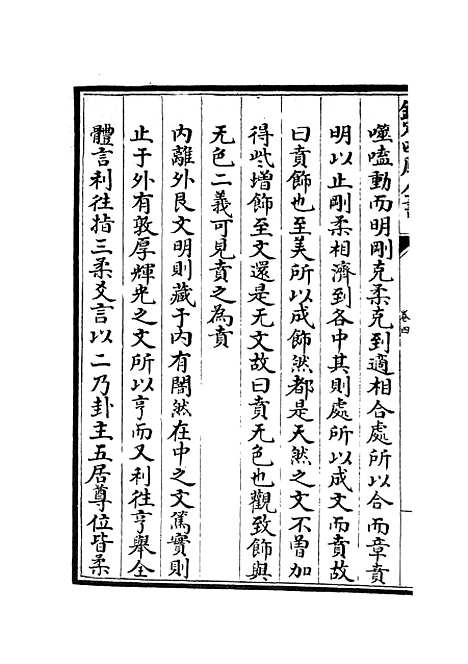 欽定四庫全書
卷四
噬嗑動而明剛克柔克到適相合處所以合而章賁
明以止剛柔相濟到各中其則處所以成文而賁故
曰賁飾也至美所以成飾然都是天然之文不曽加
得些増飾至文還是无文故曰賁无色也觀致飾與
无色二義可見賁之為賁
内離外艮文明則藏于内有闇然在中之文篤實則
止于外有敦厚輝光之文所以亨而又利往亨舉全
體言利往指三柔爻言以二乃卦主五居尊位皆柔